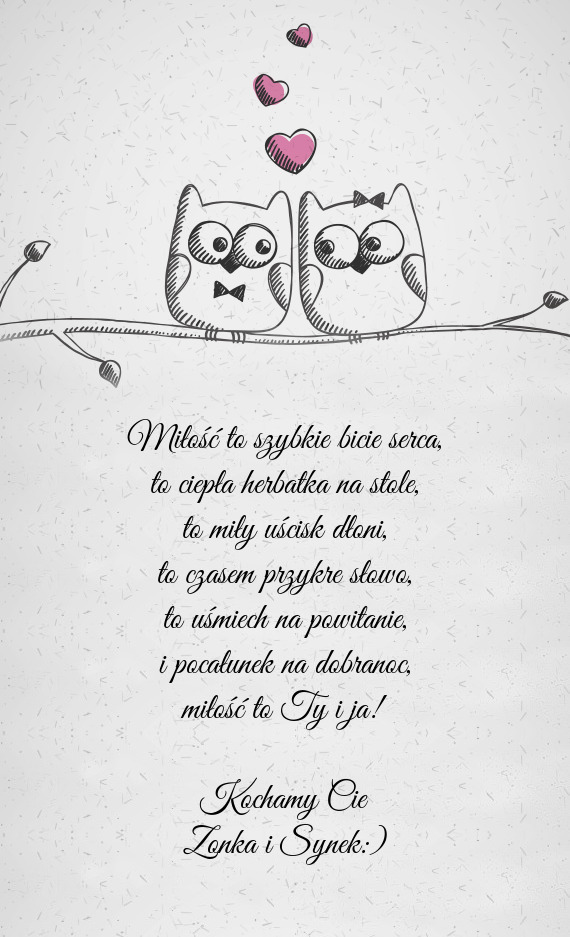 Miłość to szybkie bicie serca,
to ciepła herbatka na stole,
to miły uścisk dłoni,
to czasem przykre słowo,
to uśmiech na powitanie,
i pocałunek na dobranoc,
miłość to Ty i ja!
Kochamy Cie
Zonka i Synek:)